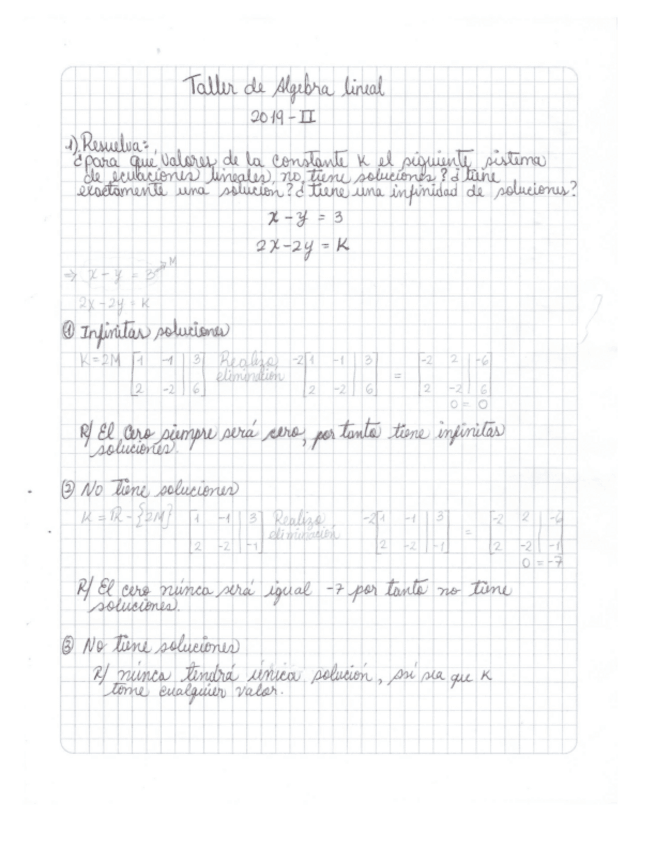 Taller de Algebra lineal
2019-II
1) Resuelva:
¿para qué valores de la constante K el siguiente sistema
de ecuaciones lineales, no tiene soluciones? ¿tiene
exactamente una solución? ¿tiene una infinidad de soluciones?
x - y = 3
2x - 2y = K
⇒ x - y = 3 → M
2x - 2y = K
① Infinitas soluciones
K = 2M [1 -1 | 3] Realizo -2[1 -1 | 3] [-2 2 | -6]
eliminación =
[2 -2 | 6] [2 -2 | 6] [2 -2 | 6]
0 = 0
R/ El cero siempre será cero, por tanto tiene infinitas
soluciones.
② No tiene soluciones
K = R - {2M} [1 -1 | 3] Realizo -2[1 -1 | 3] [-2 2 | -6]
eliminación =
[2 -2 | -1] [2 -2 | -1] [2 -2 | -1]
0 = -7
R/ El cero núnca será igual -7 por tanto no tiene
soluciones.
③ No tiene soluciones
R/ núnca tendrá única solución, así sea que K
tome cualquier valor.